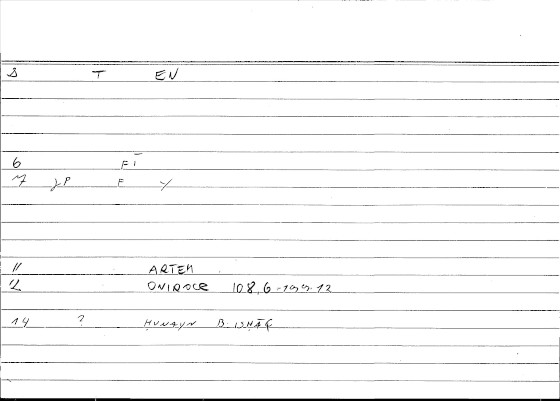 S T EN
6 FĪ
7 JP F Y
11 ARTEM
12 ONIROCR 108,6-199.12
14 ? ḤUNAYN B. ISḤĀQ